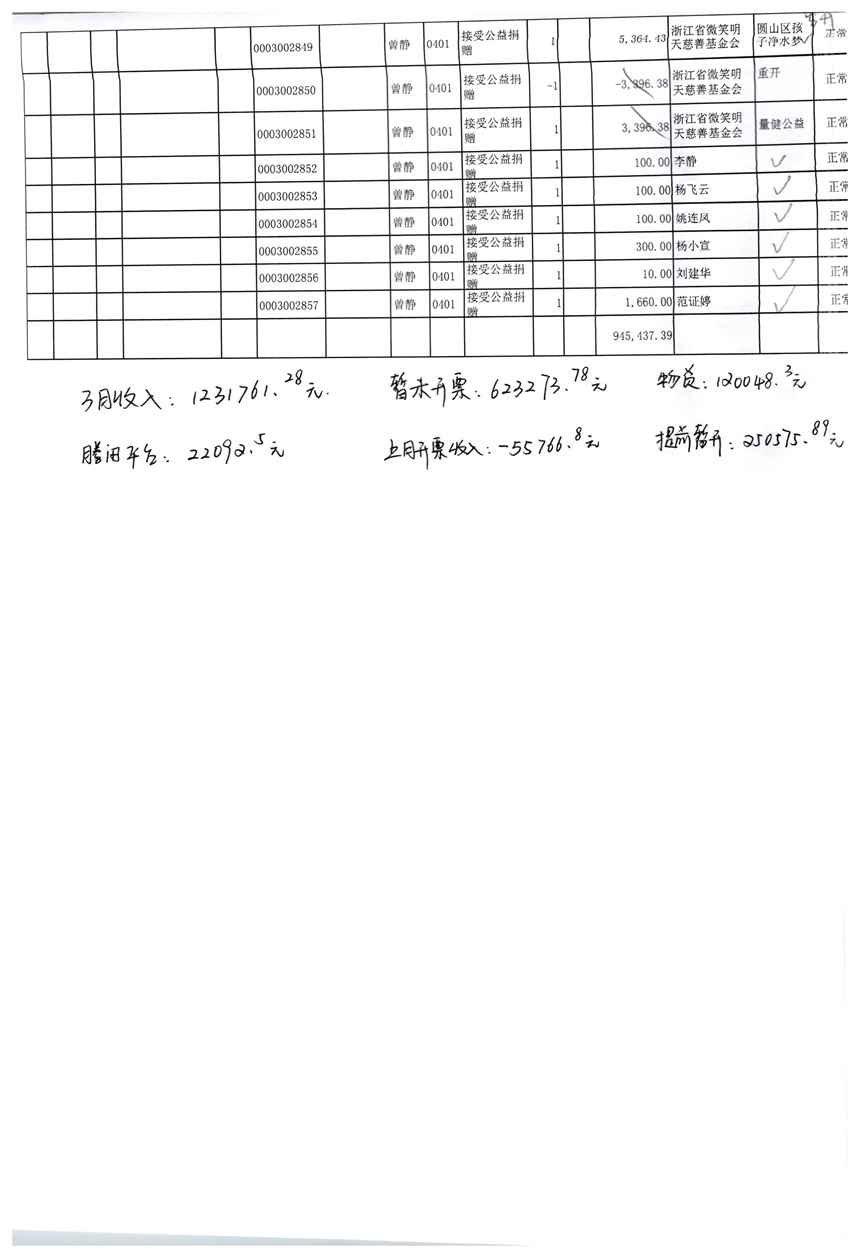 0003002849 曾静 0401 接受公益捐赠 1 5,364.43 浙江省微笑明天慈善基金会 圆山区孩子净水梦 正常
0003002850 曾静 0401 接受公益捐赠 -1 -3,396.38 浙江省微笑明天慈善基金会 重开 正常
0003002851 曾静 0401 接受公益捐赠 1 3,396.38 浙江省微笑明天慈善基金会 量健公益 正常
0003002852 曾静 0401 接受公益捐赠 1 100.00 李静 ✓ 正常
0003002853 曾静 0401 接受公益捐赠 1 100.00 杨飞云 ✓ 正常
0003002854 曾静 0401 接受公益捐赠 1 100.00 姚连凤 ✓ 正常
0003002855 曾静 0401 接受公益捐赠 1 300.00 杨小宣 ✓ 正常
0003002856 曾静 0401 接受公益捐赠 1 10.00 刘建华 ✓ 正常
0003002857 曾静 0401 接受公益捐赠 1 1,660.00 范证婷 ✓ 正常
945,437.39
3月收入：1231761.28元. 暂未开票：623273.78元 物资：120048.3元
腾讯平台：22092.5元 上月开票收入：-55766.8元 提前暂开：250575.89元